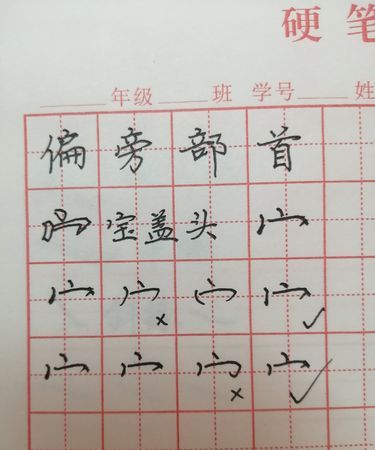 硬笔
年级 班 学号 姓
偏旁部首
宝盖头 宀
宀 宀 宀 宀
宀 宀 宀 宀